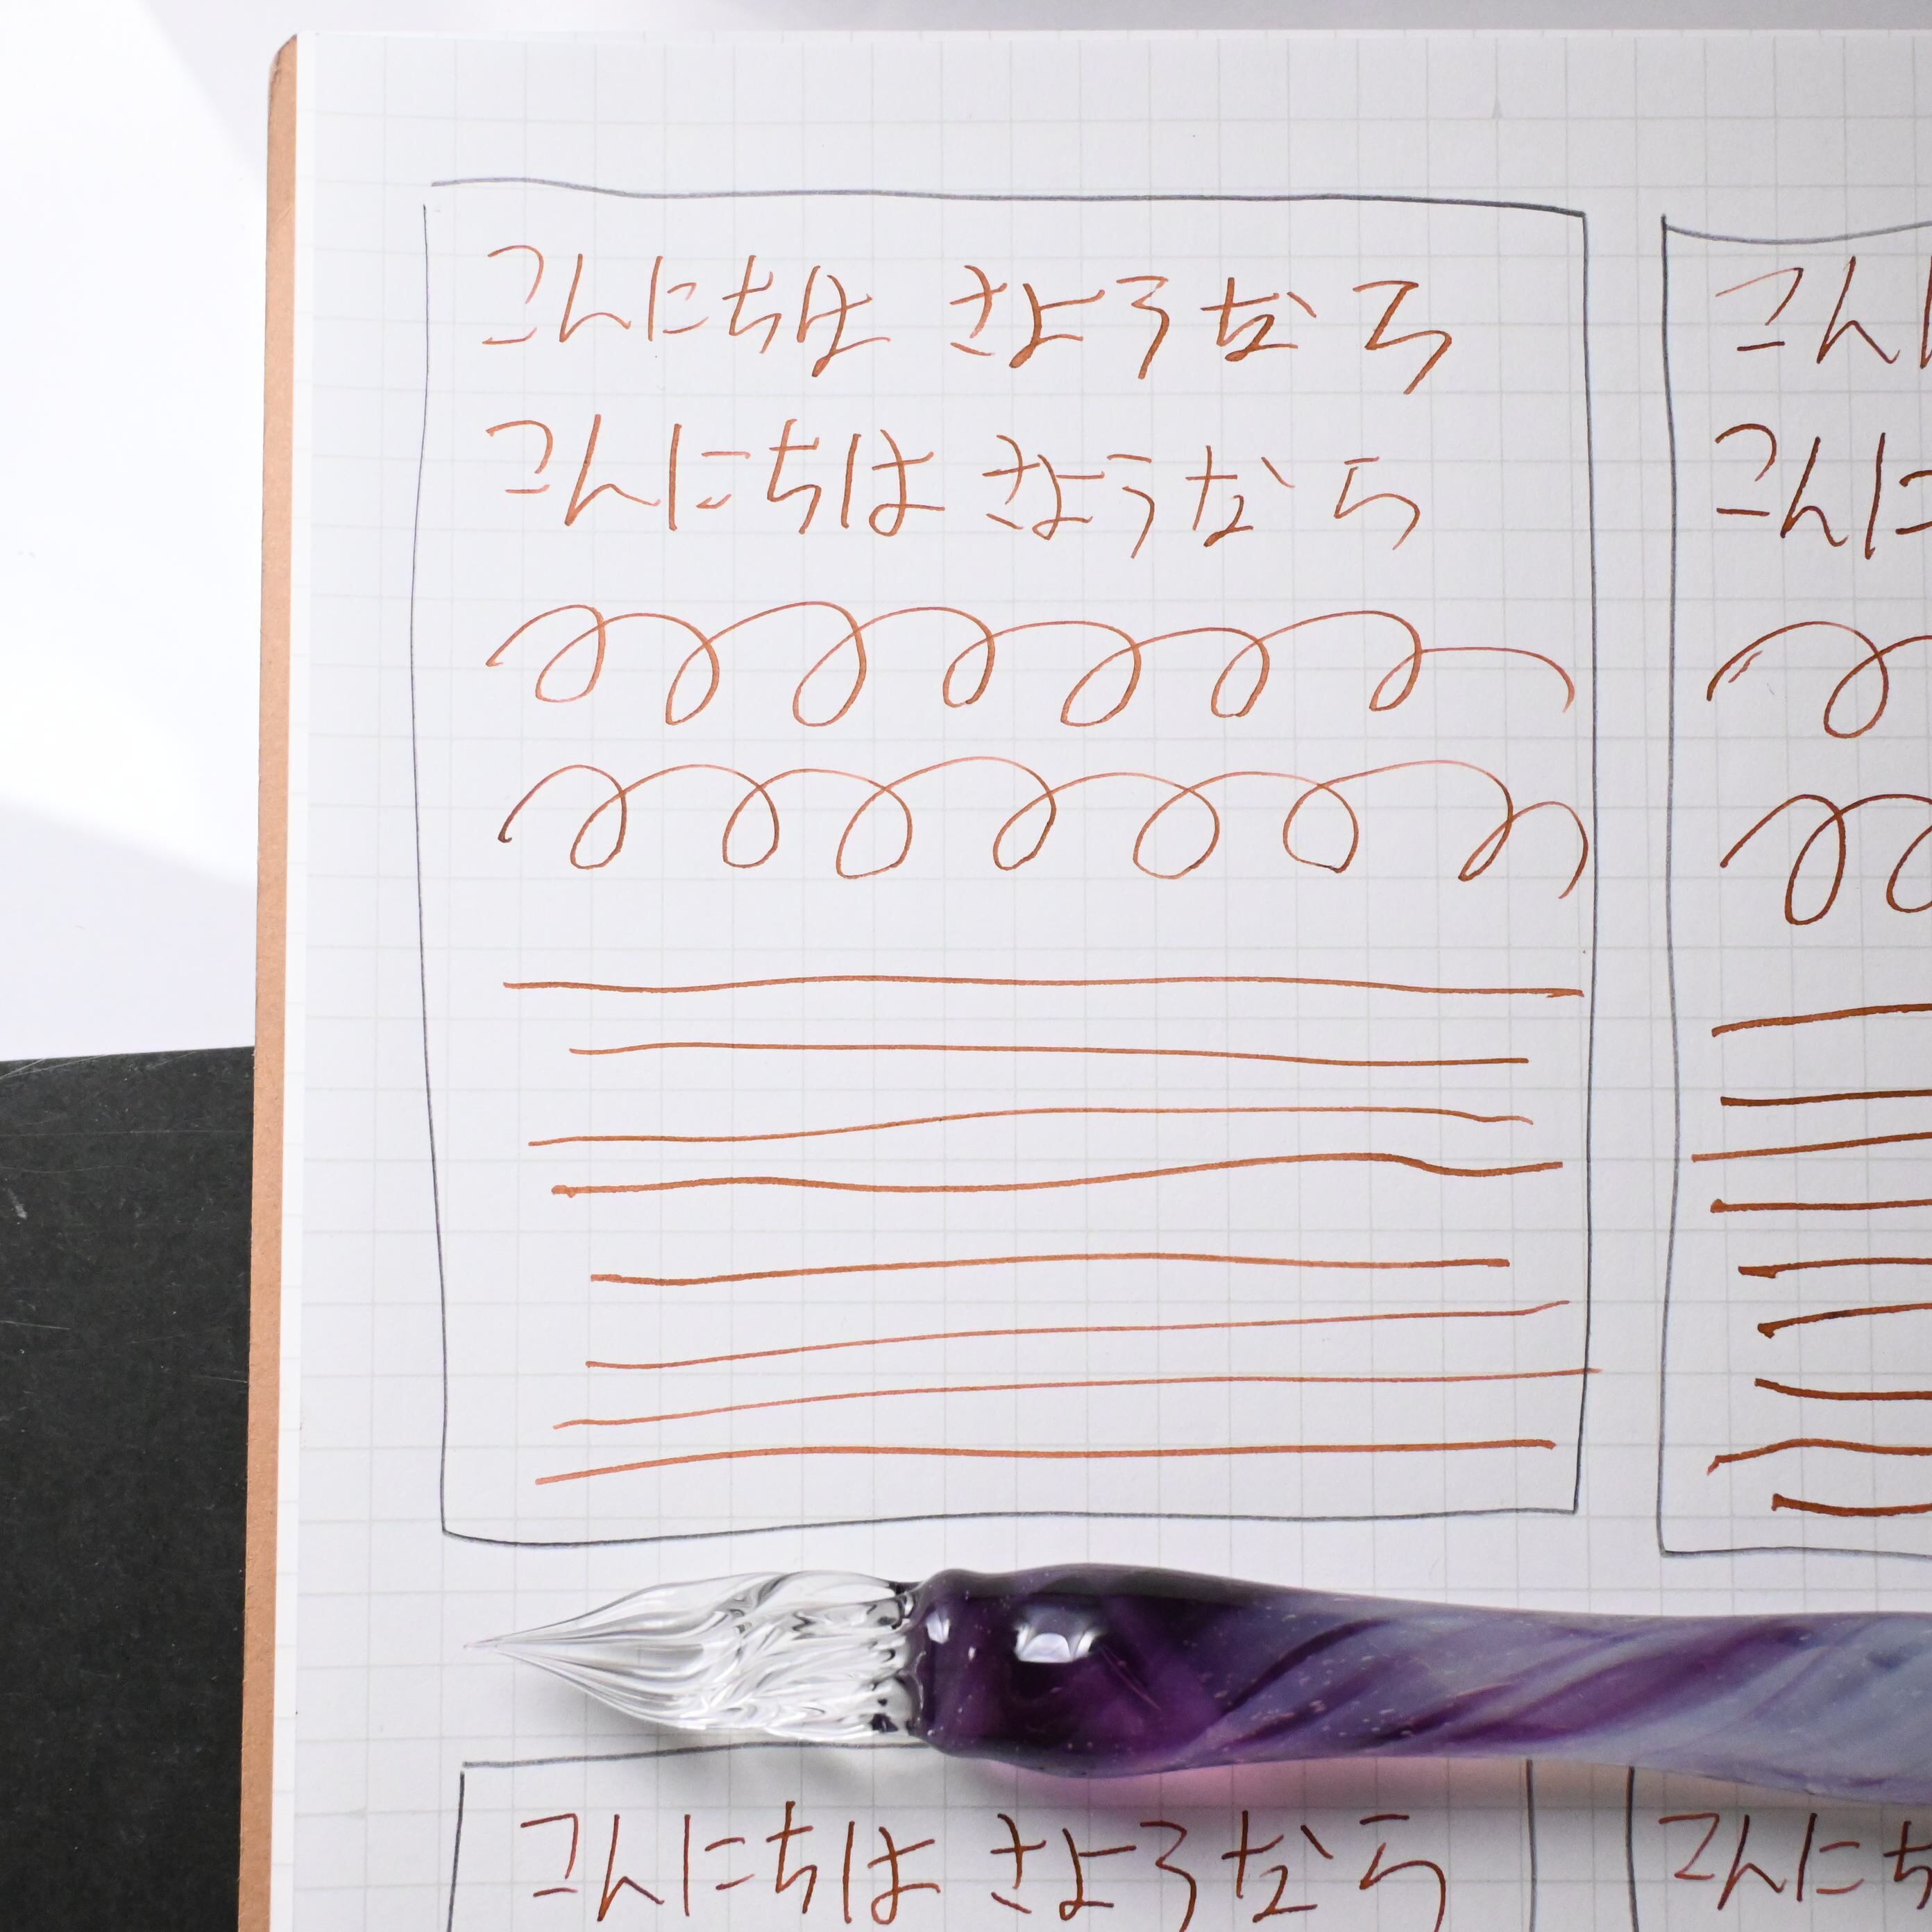 こんにちは さようなら
こんにちは さようなら
こん
こんに
こんにちは さようなら
こんにち